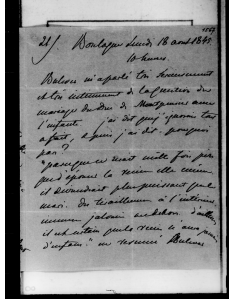 21/ Boulogne Lundi 18 août 1845
10 heures
Bulwer m'a parlé très sérieusement
et très intimement de la question du
mariage du Duc de Montpensier avec
l'infante. j'ai dit que j'ignorais tout
à fait, et puis j'ai dit. pourquoi
pas ?
"parceque ce serait mille fois pire
que d'épouser la reine elle même
il deviendrait plus puissant que le
mari. du tiraillement à l'intérieur,
jalousie au dehors. d'ailleurs
il est certain que la reine n'aura point
d'enfans." en résumé Bulwer